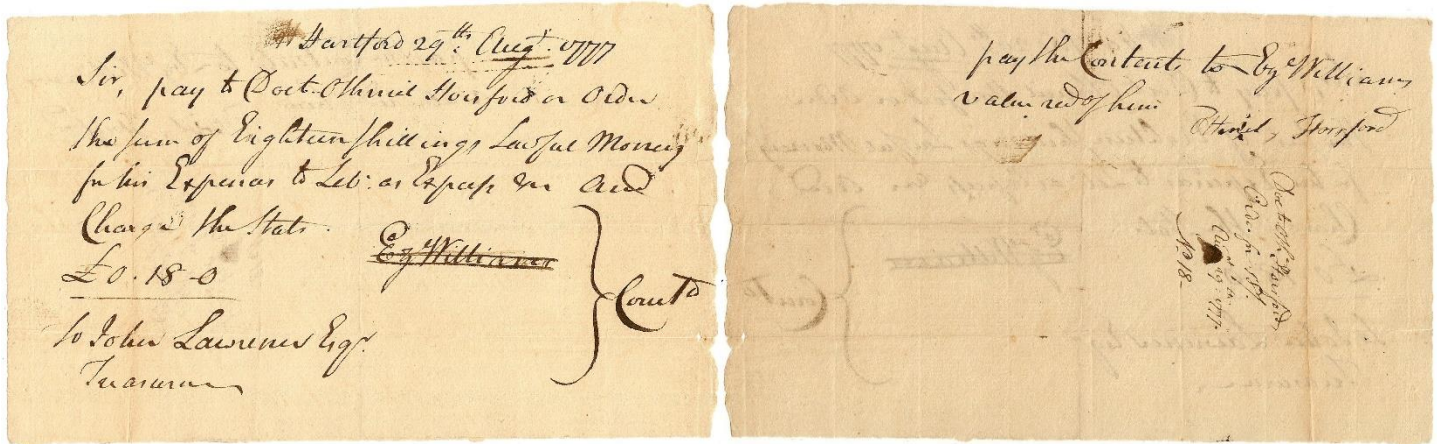 Hartford 29th. Augt. 1777
Sir, pay to Doct. Othniel Horsford or Order
the sum of Eighteen shillings Lawful Money
for his Expenses to Leb: as Express &c and
Charge the State.
£0.18-0
Ez Williams
Comte
To John Lawrence Esqr.
Treasurer
pay the Contents to Ezl Williams
value recd of him
Othniel, Horsford
Doct O. Horsford
Order for 18/
Augt 29. 1777.
No 18.